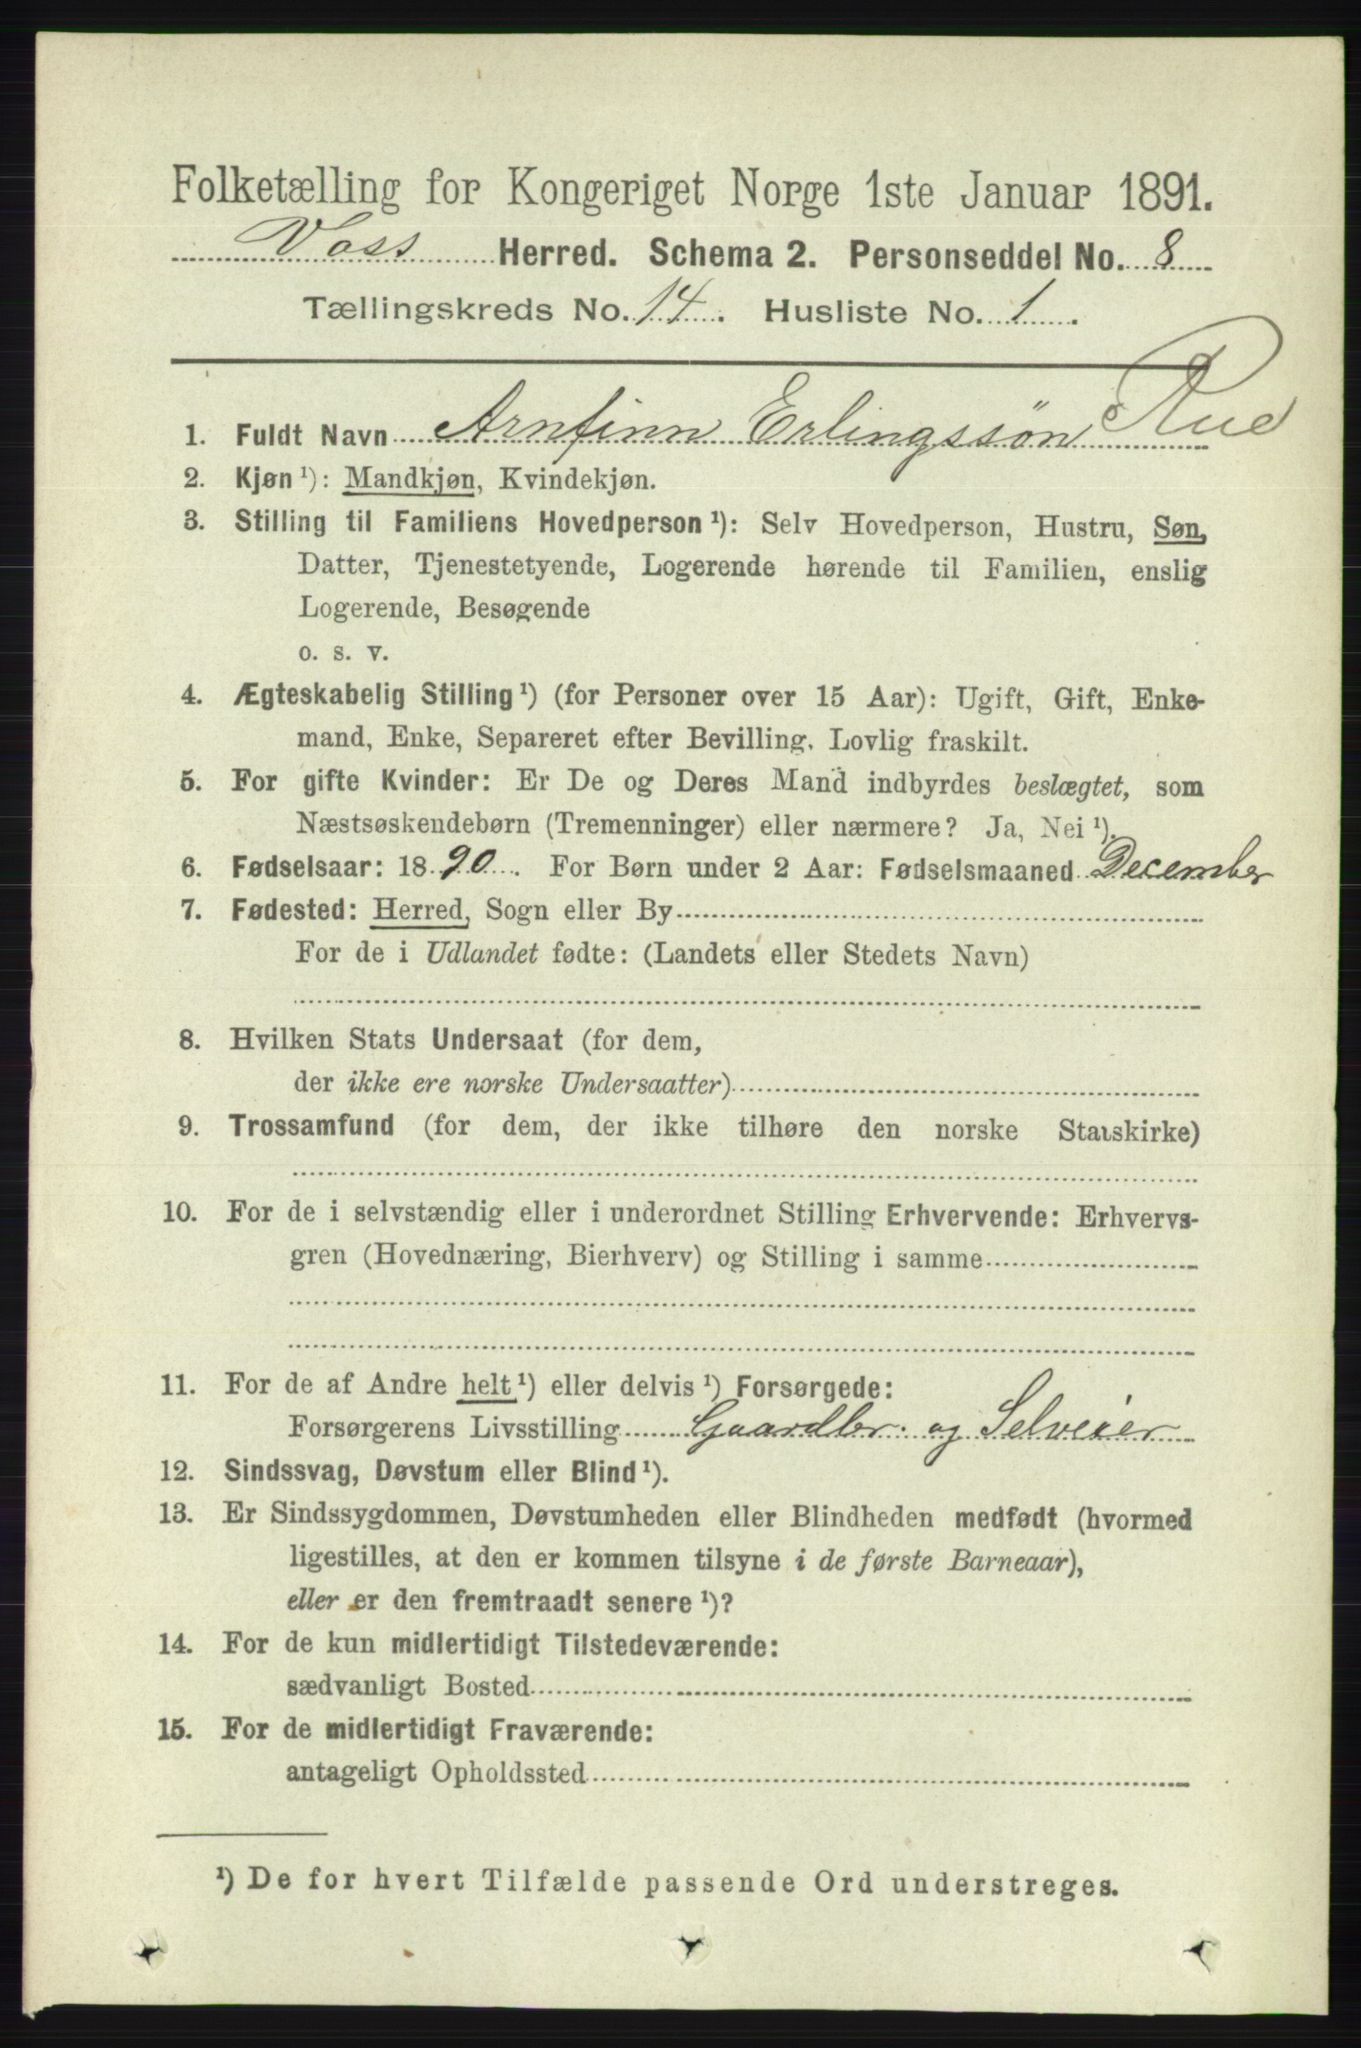 Folketælling for Kongeriget Norge 1ste Januar 1891.
Voss Herred. Schema 2. Personseddel No. 8
Tællingskreds No. 14. Husliste No. 1.
1. Fuldt Navn Arnfinn Erlingssön Rue
2. Kjøn ¹): Mandkjøn, Kvindekjøn.
3. Stilling til Familiens Hovedperson ¹): Selv Hovedperson, Hustru, Søn,
Datter, Tjenestetyende, Logerende hørende til Familien, enslig
Logerende, Besøgende
o. s. v.
4. Ægteskabelig Stilling ¹) (for Personer over 15 Aar): Ugift, Gift, Enke-
mand, Enke, Separeret efter Bevilling, Lovlig fraskilt.
5. For gifte Kvinder: Er De og Deres Mand indbyrdes beslægtet, som
Næstsøskendebørn (Tremenninger) eller nærmere? Ja, Nei ¹).
6. Fødselsaar: 1890. For Børn under 2 Aar: Fødselsmaaned December
7. Fødested: Herred, Sogn eller By
For de i Udlandet fødte: (Landets eller Stedets Navn)
8. Hvilken Stats Undersaat (for dem,
der ikke ere norske Undersaatter)
9. Trossamfund (for dem, der ikke tilhøre den norske Statskirke)
10. For de i selvstændig eller i underordnet Stilling Erhvervende: Erhvervs-
gren (Hovednæring, Bierhverv) og Stilling i samme
11. For de af Andre helt ¹) eller delvis ¹) Forsørgede:
Forsørgerens Livsstilling Gaardbr. og Selveier
12. Sindssvag, Døvstum eller Blind ¹).
13. Er Sindssygdommen, Døvstumheden eller Blindheden medfødt (hvormed
ligestilles, at den er kommen tilsyne i de første Barneaar),
eller er den fremtraadt senere ¹)?
14. For de kun midlertidigt Tilstedeværende:
sædvanligt Bosted
15. For de midlertidigt Fraværende:
antageligt Opholdssted
¹) De for hvert Tilfælde passende Ord understreges.